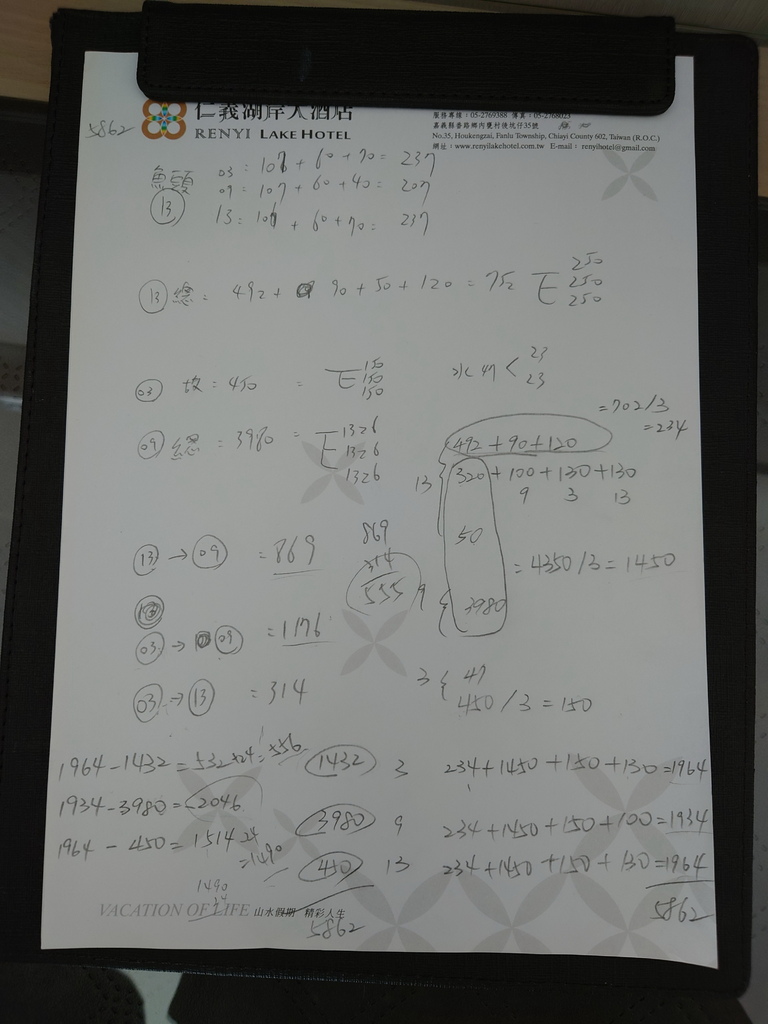 5862
仁義湖岸大酒店
RENYI LAKE HOTEL
服務專線：05-2769388 傳真：05-2768023
嘉義縣番路鄉內甕村後坑仔35號
No.35, Houkengzai, Fanlu Township, Chiayi County 602, Taiwan (R.O.C.)
網址：www.renyilakehotel.com.tw E-mail：renyihotel@gmail.com
魚頭 03: 107 + 60 + 70 = 237
09: 107 + 60 + 40 = 207
13 13: 107 + 60 + 70 = 237
13 總: 492 + 90 + 50 + 120 = 752
250
250
250
03 故: 450 =
150
150
150
水 47 < 23
23
09 總: 3980 =
1326
1326
1326
492 + 90 + 120 = 702/3
= 234
13 { 320 + 100 + 130 + 130
9 3 13
50
= 4350/3 = 1450
9 { 3980
13 → 09 = 869
869
314
555
03 → 09 = 1176
03 → 13 = 314
3 { 47
450/3 = 150
1964 - 1432 = 532 + 24 = 556
1432 3 234 + 1450 + 150 + 130 = 1964
1934 - 3980 = -2046
3980 9 234 + 1450 + 150 + 100 = 1934
1964 - 450 = 1514
24
= 1490
450 13 234 + 1450 + 150 + 130 = 1964
1490
24
5862
5862
VACATION OF LIFE 山水假期 精彩人生